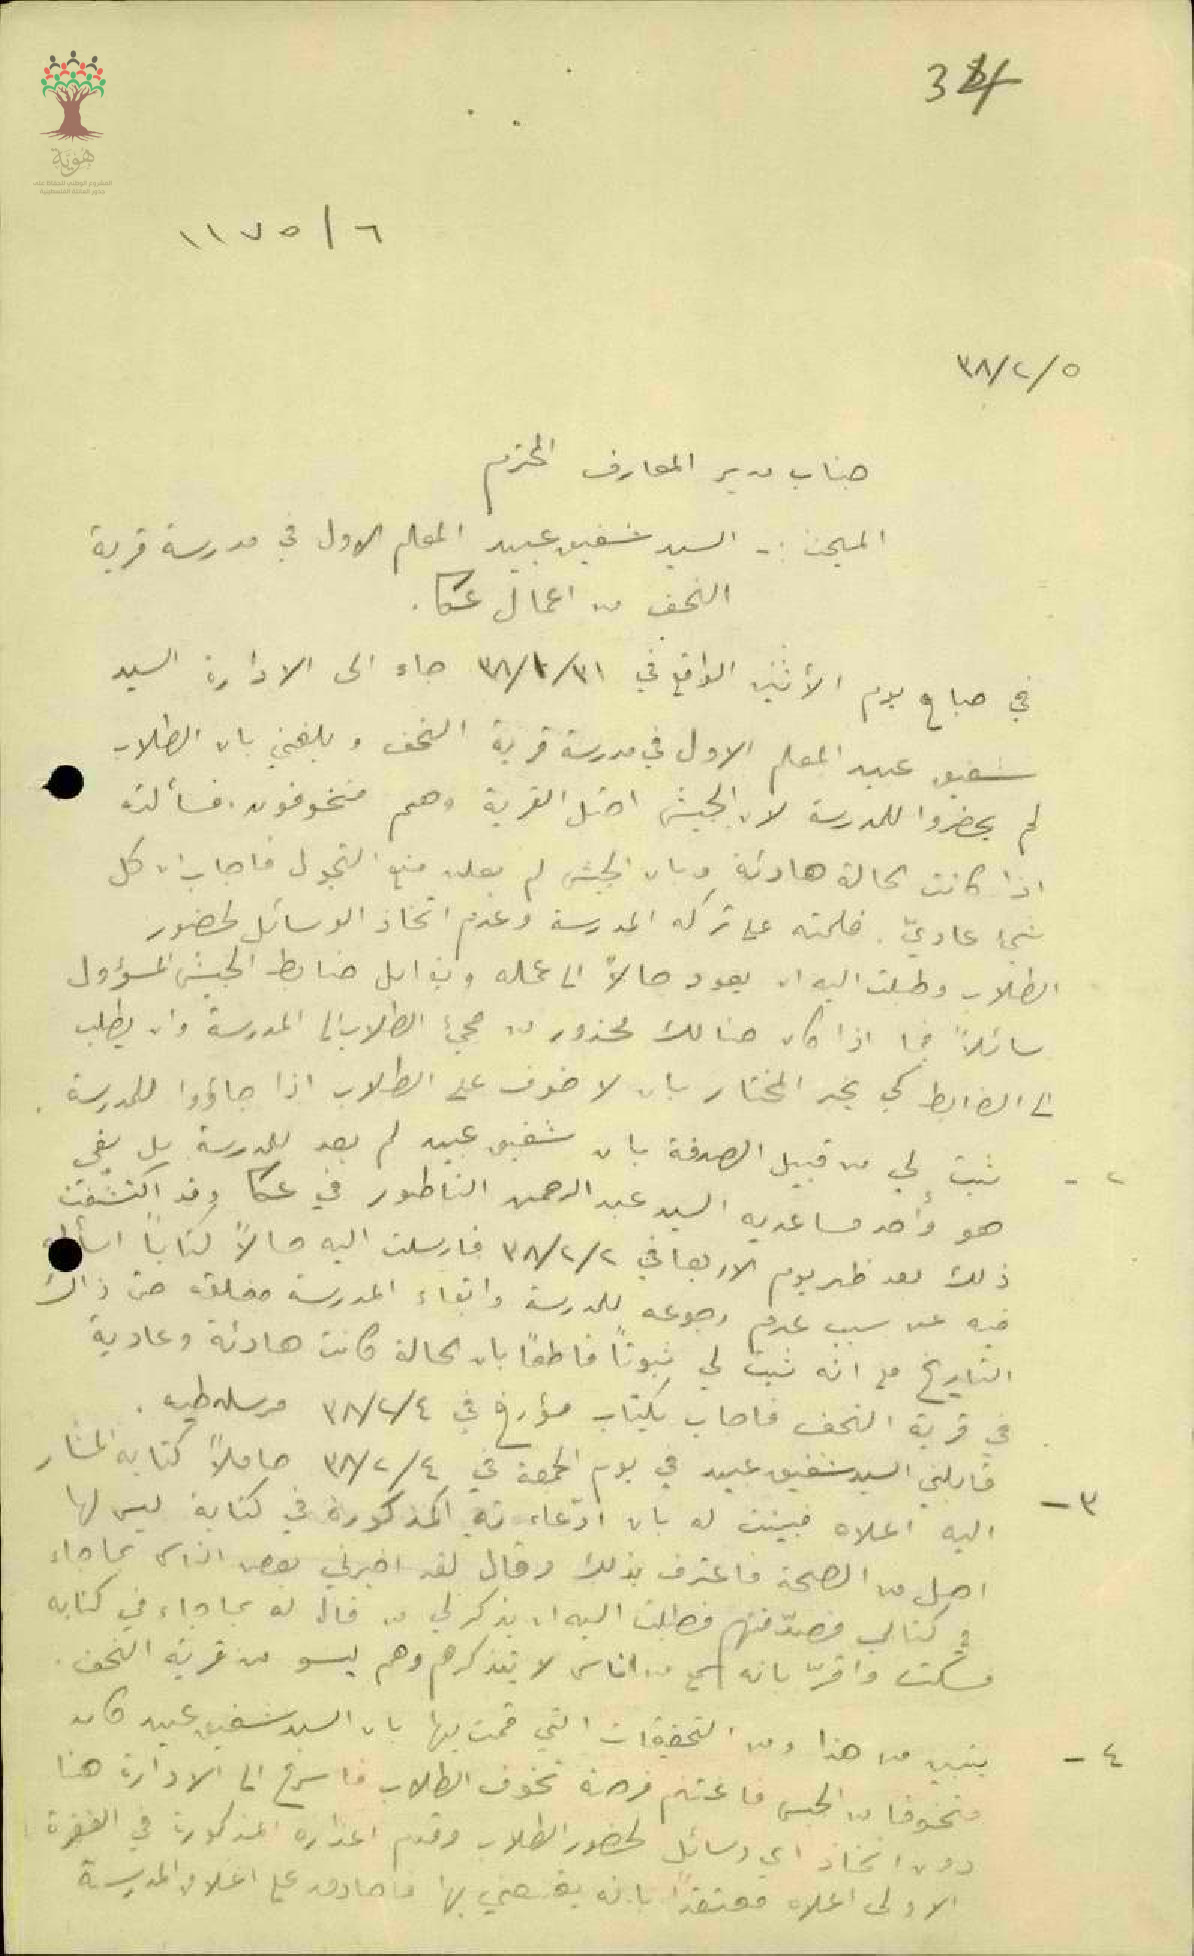 34
هوية
المشروع الوطني للحفاظ على
جذور العائلة الفلسطينية
٦/ ١١٧٥
٣٨/٢/٥
جناب مدير المعارف المحترم
المبحث :- السيد شفيق عبيد المعلم الاول في مدرسة قرية
النحف من اعمال عكا .
في صباح يوم الأثنين الواقع في ٣٨/١/٣١ جاء الى الادارة السيد
شفيق عبيد المعلم الاول في مدرسة قرية النحف و بلغني بان الطلاب
لم يحضروا للمدرسة لان الجيش احتل القرية وهم متخوفون. فسألته
اذا كانت الحالة هادئة وبان الجيش لم يعلن منع التجول فاجاب ان كل
شيء عاديّ . فلمته على تركه المدرسة وعدم اتخاذ الوسائل لحضور
الطلاب وطلبت اليه ان يعود حالاً الى عمله و ضابط الجيش المسؤول
سائلاً فيما اذا كان هنالك محذور من مجيء الطلاب الى المدرسة وان يطلب
الى الضابط كي يخبر المختار بان لا خوف على الطلاب اذا جاؤوا للمدرسة .
٢ - ثبت لي من قبيل الصدفة بان شفيق عبيد لم يعد للمدرسة بل بقي
هو وأحد مساعديه السيد عبد الرحمن الناطور في عكا وقد اكتشفت
ذلك بعد ظهر يوم الاربعا في ٣٨/٢/٢ فارسلت اليه حالاً كتاباً اسأله
فيه عن سبب عدم رجوعه للمدرسة وابقاء المدرسة مغلقة حتى ذاك
التاريخ مع انه ثبت لي ثبوتاً قاطعاً بان الحالة كانت هادئة وعادية
في قرية النحف فاجاب بكتاب مؤرخ في ٣٨/٢/٤ مرسله طيه .
٣ - قابلني السيد شفيق عبيد في يوم الجمعة في ٣٨/٢/٤ حاملاً كتابه المشار
اليه اعلاه فبينت له بان ادعاءاته المذكورة في كتابه ليس لها
اصل من الصحة فاعترف بذلك وقال لقد اخبرني بعض الناس بما جاء
في كتابي فصدّقتهم فطلبت اليه ان يذكر لي من قال له بما جاء في كتابه
فسكت واقرّ بانه سمع من اناس لا يتذكرهم وهم ليسو من قرية النحف .
٤ - يتبين من هذا ومن التحقيقات التي قمت بها بان السيد شفيق عبيد كان
متخوفا من الجيش فاغتنم فرصة تخوف الطلاب فاسرع الى الادارة هنا
دون اتخاذ اي وسائل لحضور الطلاب وقدم اعذاره المذكورة في الفقرة
الاولى اعلاه معتقداً بانه يقنعني بها فاصادق على اغلاق المدرسة